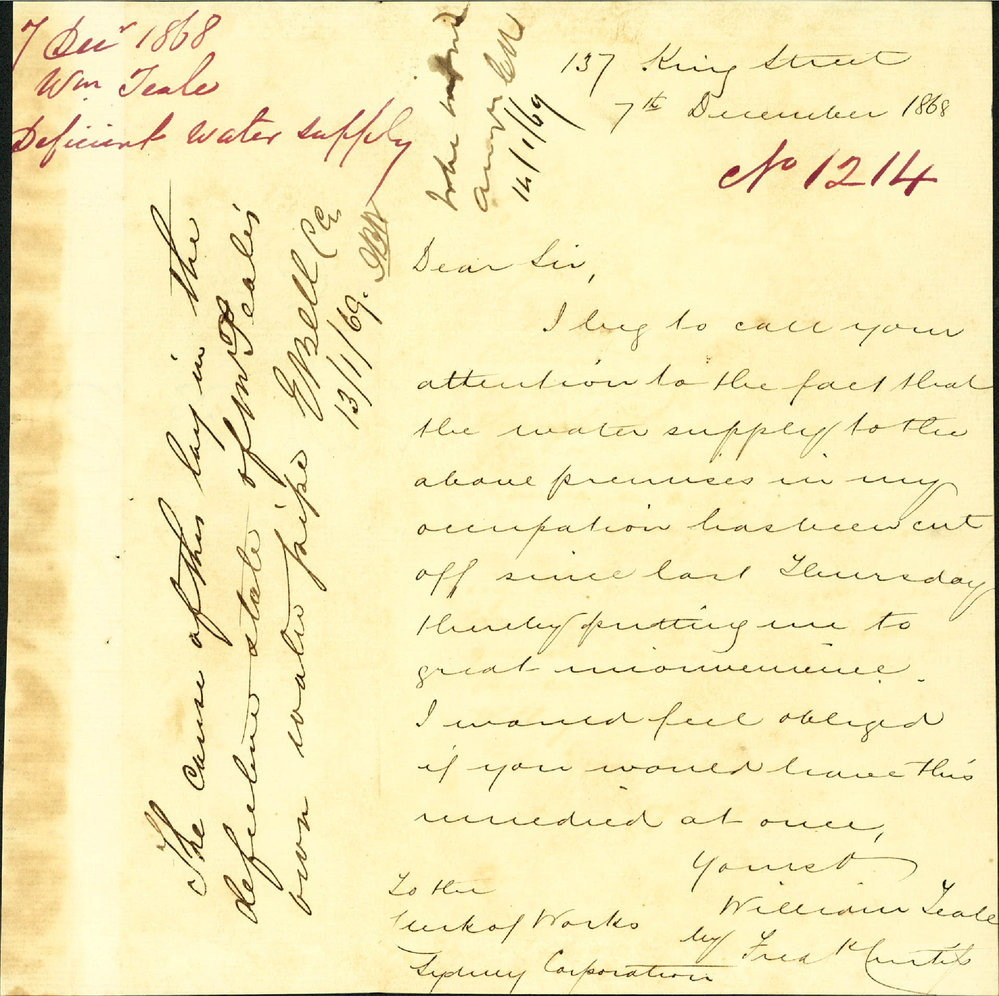 7 Decr 1868
Wm Teale
Deficient water supply
137 King Street
7th December 1868
No 1214
Dear Sir,
I beg to call your
attention to the fact that
the water supply to the
above premises in my
occupation has been cut
off since last Thursday
thereby putting me to
great inconvenience.
I would feel obliged
if you would have this
remedied at once,
Yours &
William Teale
by Fred
To the
Clerk of Works
Sydney Corporation
The cause of this lay in the
defective state of Mr Teale's
own water pipe
EBell CE
13/1/69.
answer
14/1/69